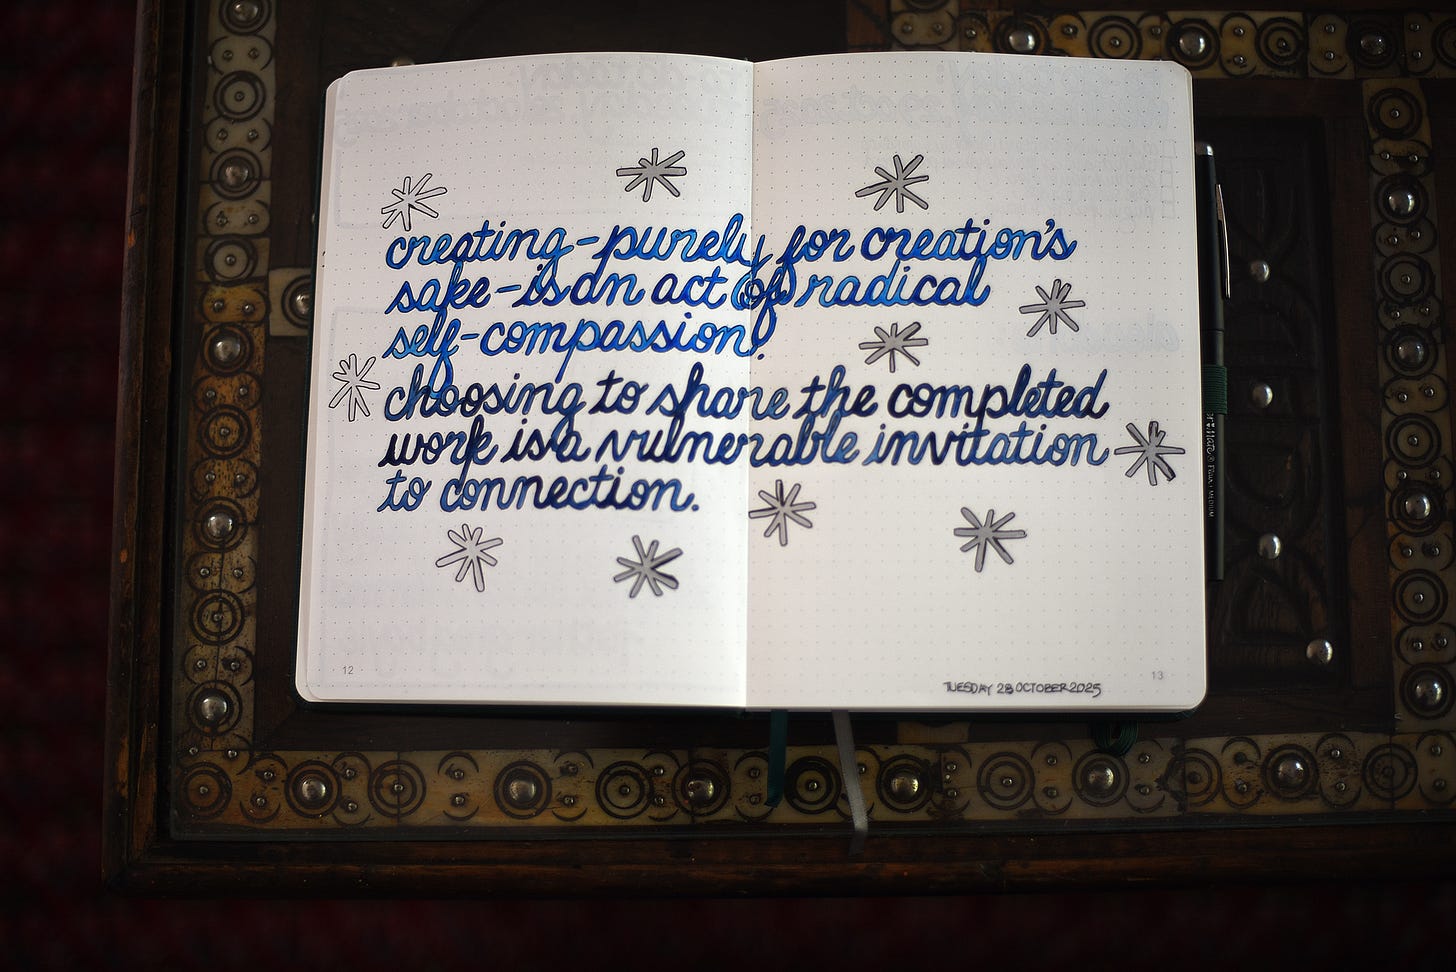 creating-purely for creation's
sake-is an act of radical
self-compassion.
choosing to share the completed
work is a vulnerable invitation
to connection.
12
13
TUESDAY 28 OCTOBER 2025